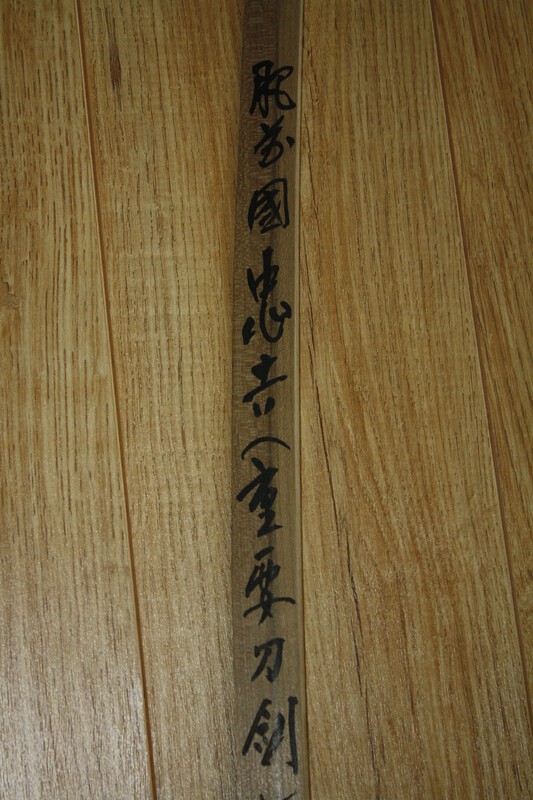 肥前國忠吉（重要刀剣